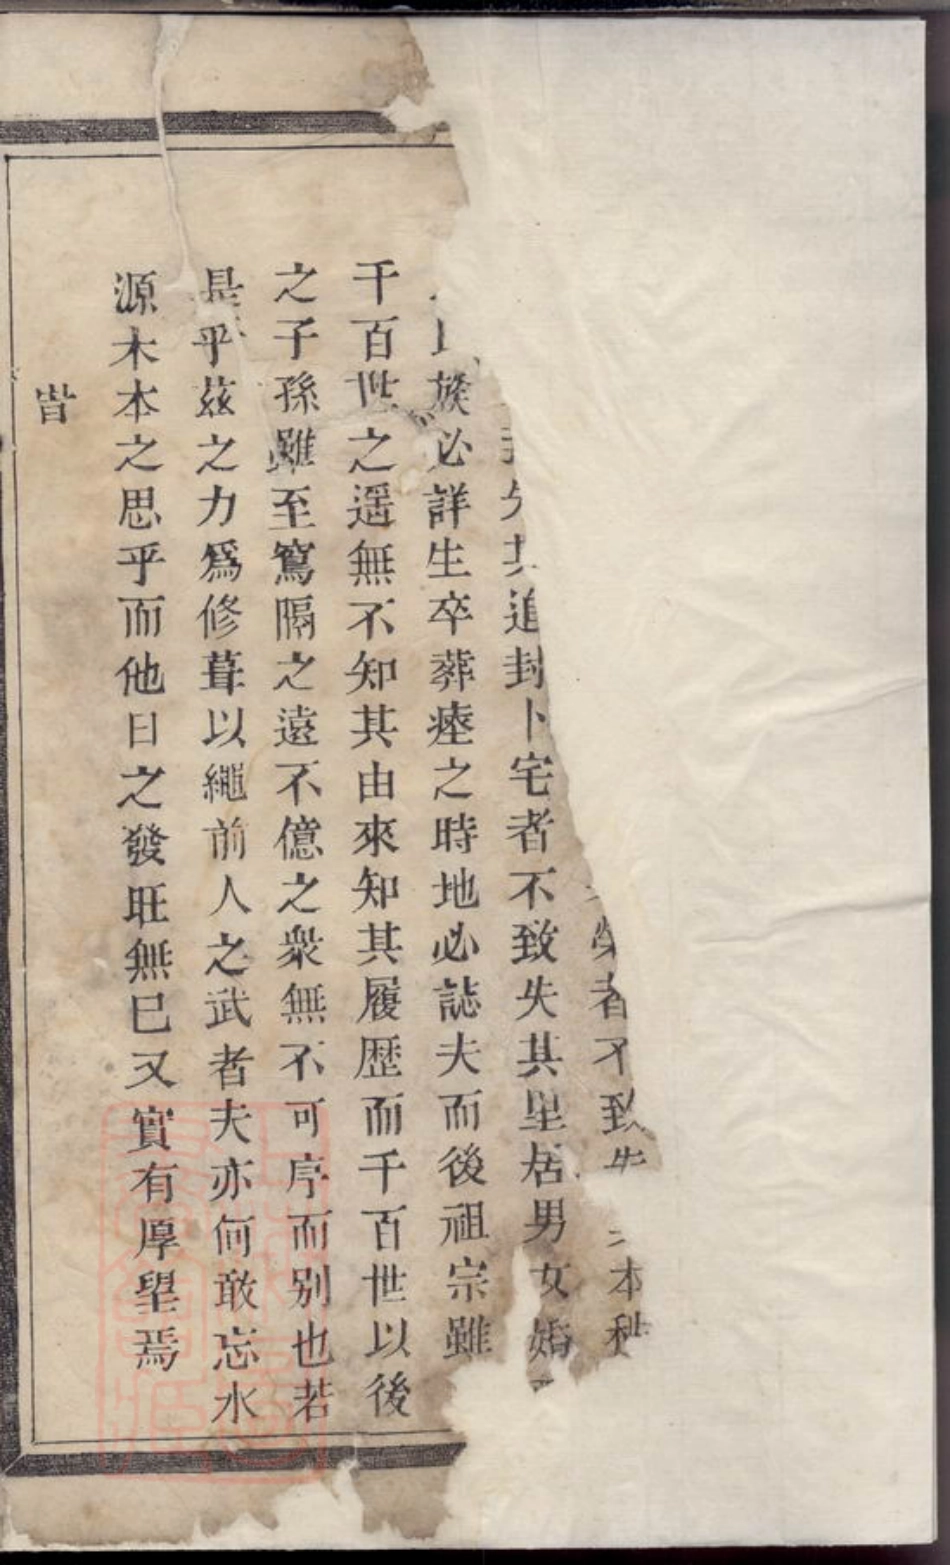 榮者不致失本
封卜宅者不致失其里居男女婚
族必詳生卒葬瘞之時地必誌夫而後祖宗雖
千百世之遥無不知其由來知其履歴而千百世以後
之子孫雖至窵隔之遠不億之衆無不可序而别也若
是乎茲之力爲修葺以繩前人之武者夫亦何敢忘水
源木本之思乎而他日之發旺無已又實有厚望焉
旹